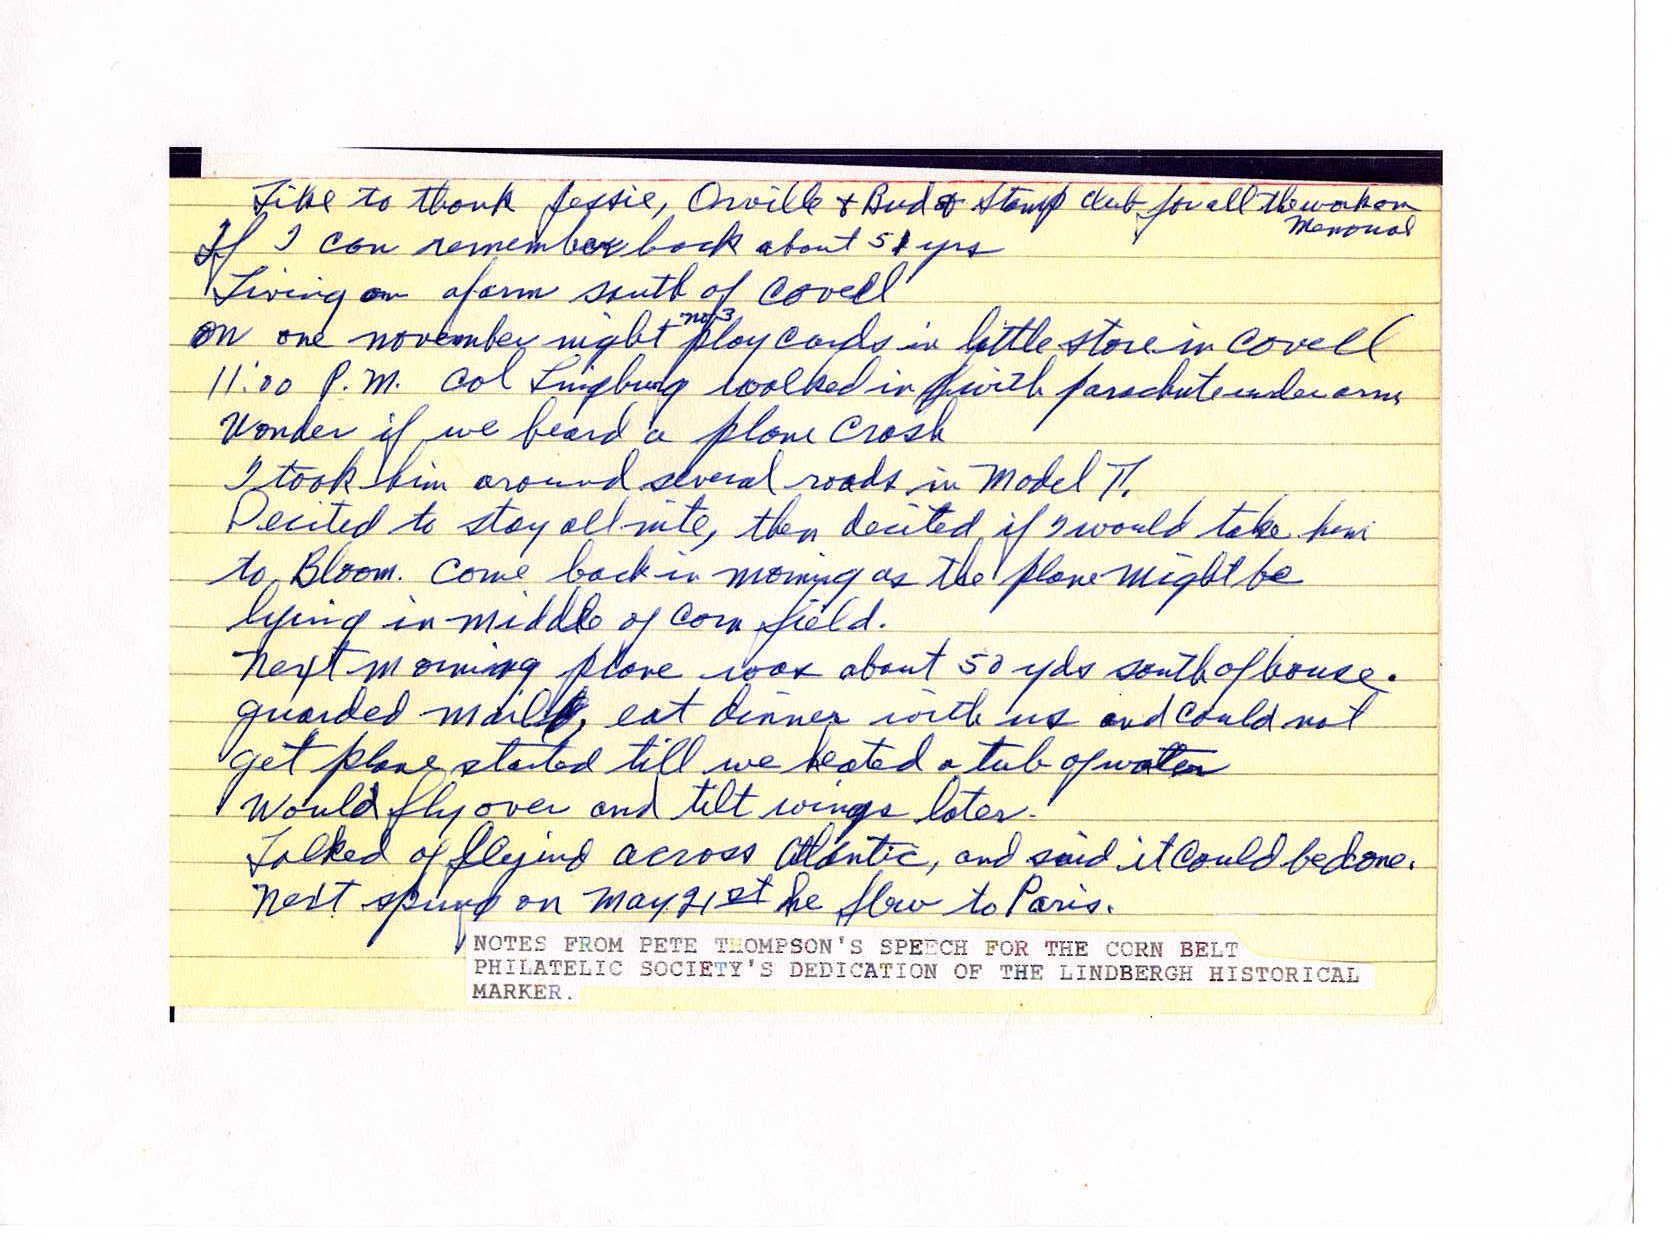 Like to thank Jessie, Orville & Bud & Stamp club for all the work on
Memorial
If I can remember back about 51 yrs
Living on a farm south of Covell
nov 3
on one november night play cards in little store in Covell
11:00 P.M. Col Lingburg walked in with parachute under arm
Wonder if we heard a plane crash
I took him around several roads in Model T.
Decited to stay all nite, then decited if I would take him
to Bloom. Come back in morning as the plane might be
lying in middle of corn field.
Next morning plane was about 50 yds south of house.
guarded mail, eat dinner with us and could not
get plane started till we heated a tub of water
Would fly over and tilt wings later.
Talked of flying across Atlantic, and said it could be done.
Next spring on May 21st he flew to Paris.
NOTES FROM PETE THOMPSON'S SPEECH FOR THE CORN BELT
PHILATELIC SOCIETY'S DEDICATION OF THE LINDBERGH HISTORICAL
MARKER.